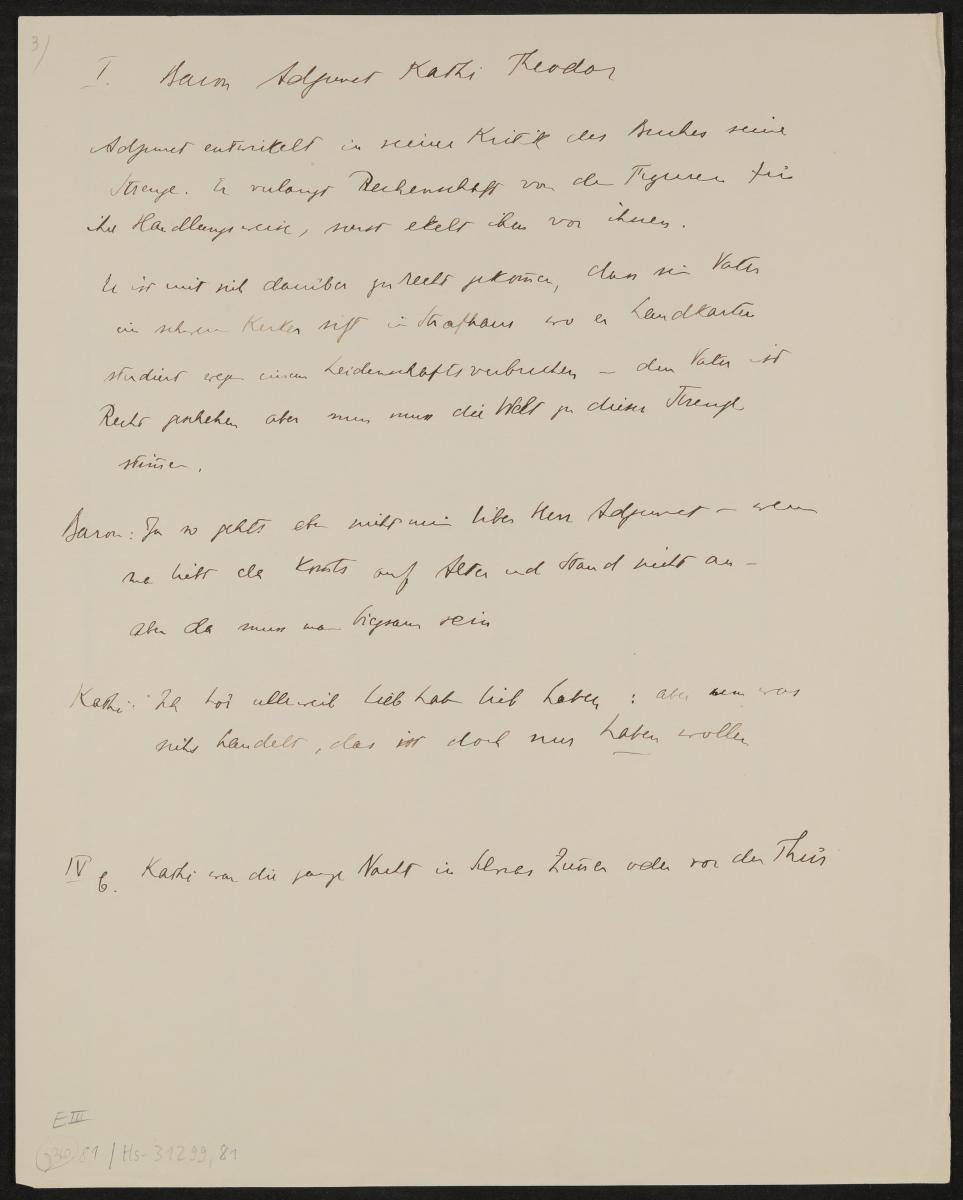 3)
I. Baron Adjunct Kathi Theodor
Adjunct entwikelt in seiner Kritik des Buches seine
Strenge. Er verlangt Rechenschaft von den Figuren für
ihre Handlungsweise, sonst ekelt ihm vor ihnen.
Er ist mit sich darüber zurecht gekom̄en, dass sein Vater
im schweren Kerker sitzt im Strafhaus wo er Landkarten
studiert wegen einem Leidenschaftsverbrechen – dem Vater ist
Recht geschehen aber nun muss die Welt zu dieser Strenge
stim̄en.
Baron: Ja so gehts eben nicht mein lieber Herr Adjunct – wenn
ma liebt da kom̄ts auf Alter und Stand nicht an –
aber da muss man biegsam sein
Kathi: Ich hör alleweil lieb habn lieb haben : aber wenn was
nichts handelt, das ist doch nur haben wollen
IV b. Kathi war die ganze Nacht in Zim̄er oder vor der Thür
E III
81 / Hs-31299,81